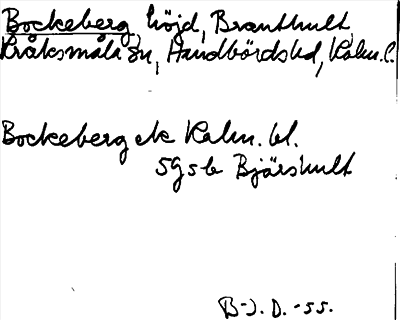 Bockeberg, höjd, Branthult,
Kråksmåla sn, Handbörds hd, Kalm. l.
Bockeberg ek Kalm. bl.
5g5b Bjärshult
B-J. D. -55.